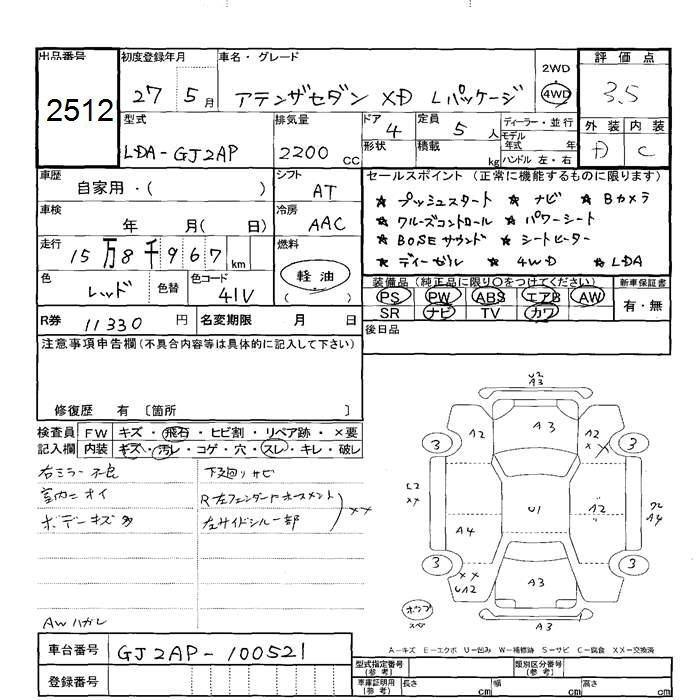 出品番号 初度登録年月 車名・グレード 2WD 評価点
2512 27 5月 アテンザセダン XD Lパッケージ 4WD 3.5
型式 排気量 ドア 定員 ディーラー・並行 外装 内装
LDA-GJ2AP 2200cc 4 5人 モデル年式 年 D C
形状 積載 kg ハンドル 左・右
車歴 シフト セールスポイント (正常に機能するものに限ります)
自家用・( ) AT ★ プッシュスタート ★ ナビ ★ Bカメラ
車検 冷房 ★ クルーズコントロール ★ パワーシート
年 月( 日) AAC ★ BOSEサウンド ★ シートヒーター
走行 燃料 ★ ディーゼル ★ 4WD ★ LDA
15万8千967km 軽油
色 色替 色コード ( ) 装備品 (純正品に限り○をつけてください) 新車保証書
レッド 41V PS PW ABS エアB AW 有・無
SR ナビ TV カワ
R券 11330円 名変期限 月 日 後日品
注意事項申告欄(不具合内容等は具体的に記入して下さい)
修復歴 有 〔箇所 〕
検査員 FW キズ・飛石・ヒビ割・リペア跡・×要
記入欄 内装 キズ・汚レ・コゲ・穴・スレ・キレ・破レ
右ミラー不良 下廻りサビ
室内ニオイ R左フェンダー
ボデーキズ多 左サイドシル一部 ××
AWハガレ
U2
A3
A2 A3 A2
××
3 3
U2
××
A4 U1 A2 A4
3 3
××
UA2 A3
A3
A-キズ E-エクボ U-凹み W-補修跡 S-サビ C-腐食 XX-交換済
車台番号 GJ2AP-100521
登録番号
型式指定番号 (参考) 類別区分番号 (参考)
車庫証明用 (参考) 長さ cm 幅 cm 高さ cm